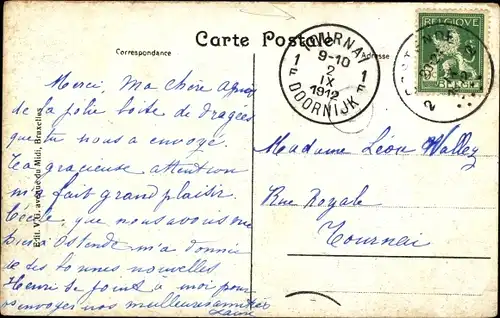 Carte Postale
Correspondance
Adresse
TOURNAI
9-10
2
IX
1912
1 F
1 F
DOORNIJK
OSTENDE
BELGIQUE
Edit. V.G. avenue du Midi, Bruxelles
Merci, ma chère
de la jolie boite de dragées
que tu nous a envoyé.
Ta gracieuse attention
m'a fait grand plaisir.
Cécile, que nous avons vue
hier à Ostende m'a donnée
de tes bonnes nouvelles
Henri se joint à moi pour
vos envoyer nos meilleures amitiés
Madame Léon Wallez
Rue Royale
Tournai